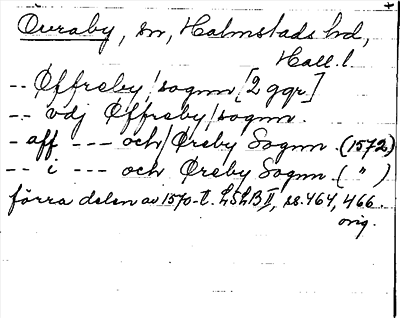 Övraby, sn, Halmstads hd,
Hall. l.
-- Øffreby / sognn [2 ggr]
-- vdj Øffreby / sognn.
- aff --- och / Øreby Sognn. (1572)
-- i --- och Øreby Sognn ( " )
förra delen av 1570-t. LSLB II, ss. 464, 466.
orig.